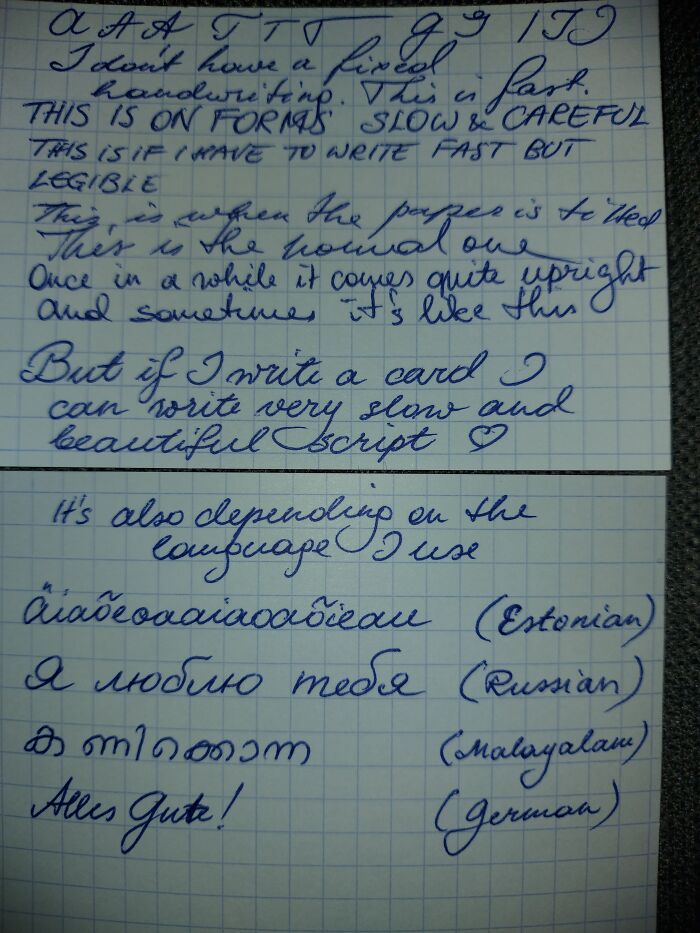 a A A T T T g G I J I
I don't have a fixed
handwriting. This is fast.
THIS IS ON FORMS SLOW & CAREFUL
THIS IS IF I HAVE TO WRITE FAST BUT
LEGIBLE
This is when the paper is tilted
This is the normal one
Once in a while it comes quite upright
and sometimes it's like this
But if I write a card I
can write very slow and
beautiful script ♡
It's also depending on the
language I use
(Estonian)
Я люблю тебя (Russian)
(Malayalam)
Alles Gute! (German)